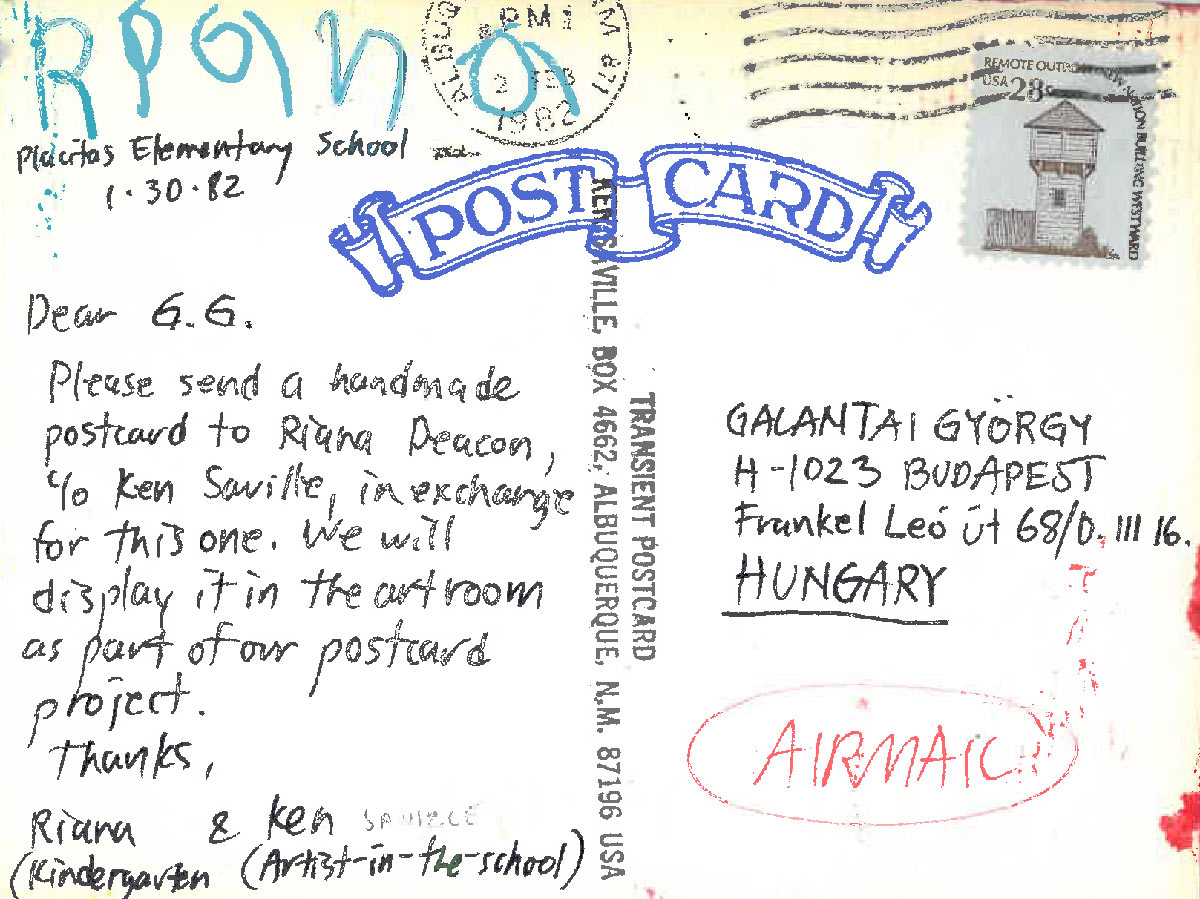 RIana
Placitas Elementary School
1·30·82
PM
2 FEB
1982
871
REMOTE OUTPOST
USA 28c
NEW NATION BUILDING WESTWARD
POST CARD
KEN SAVILLE, BOX 4662, ALBUQUERQUE, N.M. 87196 USA
TRANSIENT POSTCARD
Dear G.G.
Please send a handmade
postcard to Riana Deacon,
c/o Ken Saville, in exchange
for this one. We will
display it in the art room
as part of our postcard
project.
Thanks,
Riana & Ken SAVILLE
(Kindergarten (Artist-in-the-school)
GALANTAI GYÖRGY
H-1023 BUDAPEST
Frankel Leó út 68/D. III 16.
HUNGARY
AIRMAIL